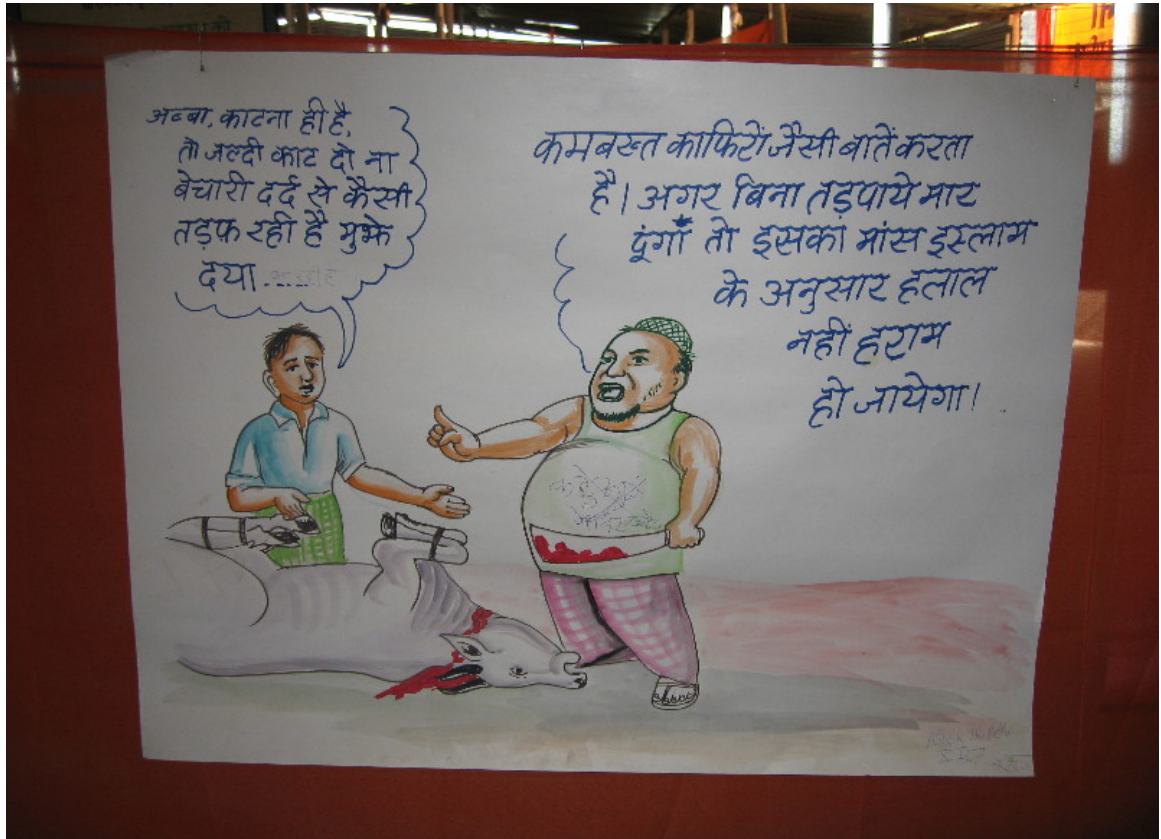 अब्बा, काटना ही है,
तो जल्दी काट दो ना
बेचारी दर्द से कैसी
तड़फ रही है मुझे
दया
कमबख्त काफिरों जैसी बातें करता
है। अगर बिना तड़पाये मार
दूंगाँ तो इसका मांस इस्लाम
के अनुसार हलाल
नहीं हराम
हो जायेगा।